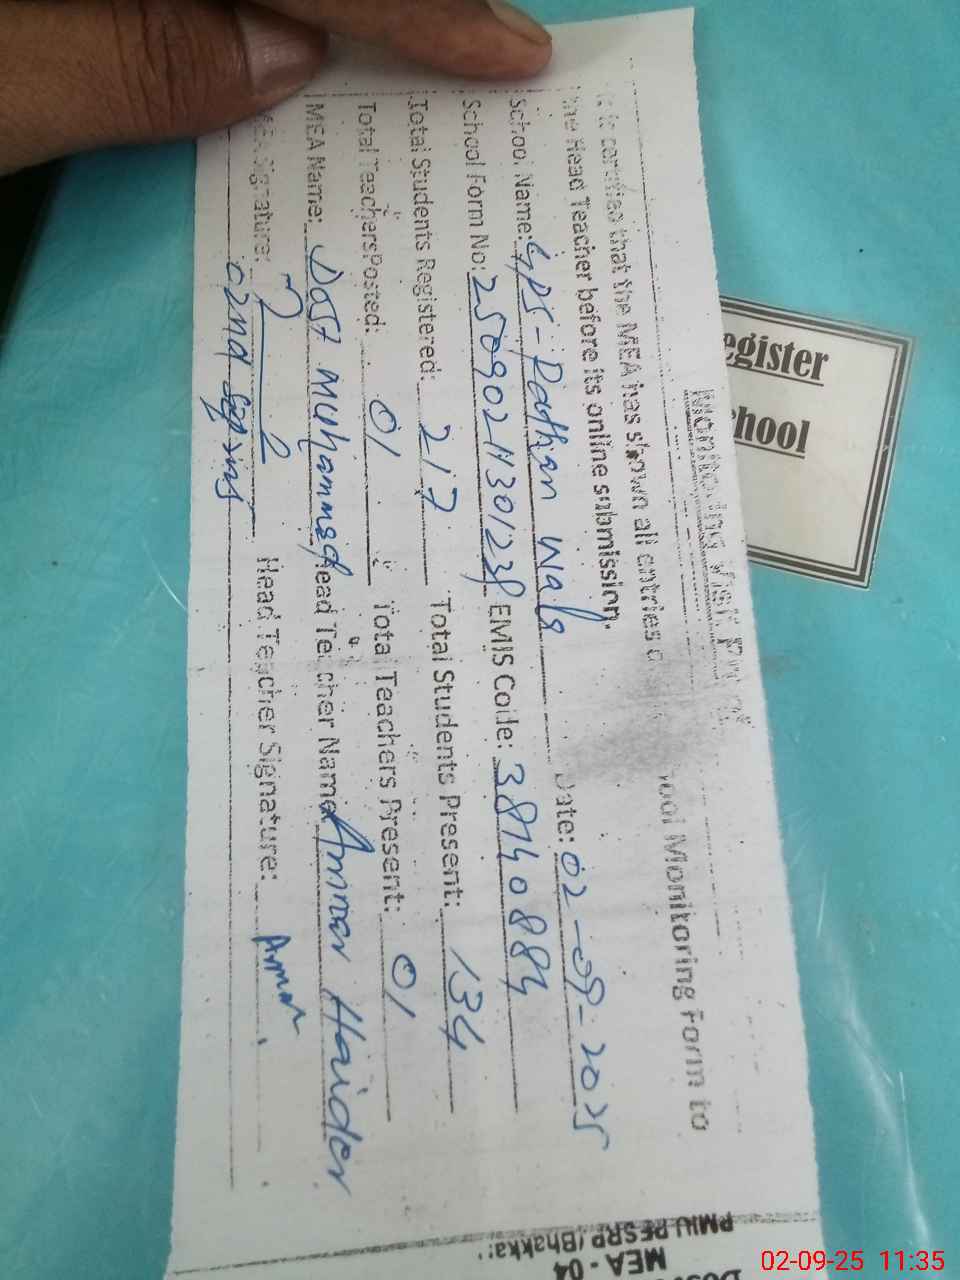 Monitoring Visit
is certified that the MEA has shown all entries ool Monitoring Form to
the Head Teacher before its online submission.
School Name: GPS-Pathan wala Date: 02-09-2025
School Form No: EMIS Code: 38140884
Total Students Registered: 217 Total Students Present: 134
Total Teachers Posted: 01 Total Teachers Present: 01
MEA Name: Dost Muhammad Head Teacher Name: Ammar Haider
MEA Signature: Head Teacher Signature: Ammar
02nd
egister
hool
PMIU PESRP (Bhakkar)
MEA - 04
02-09-25 11:35